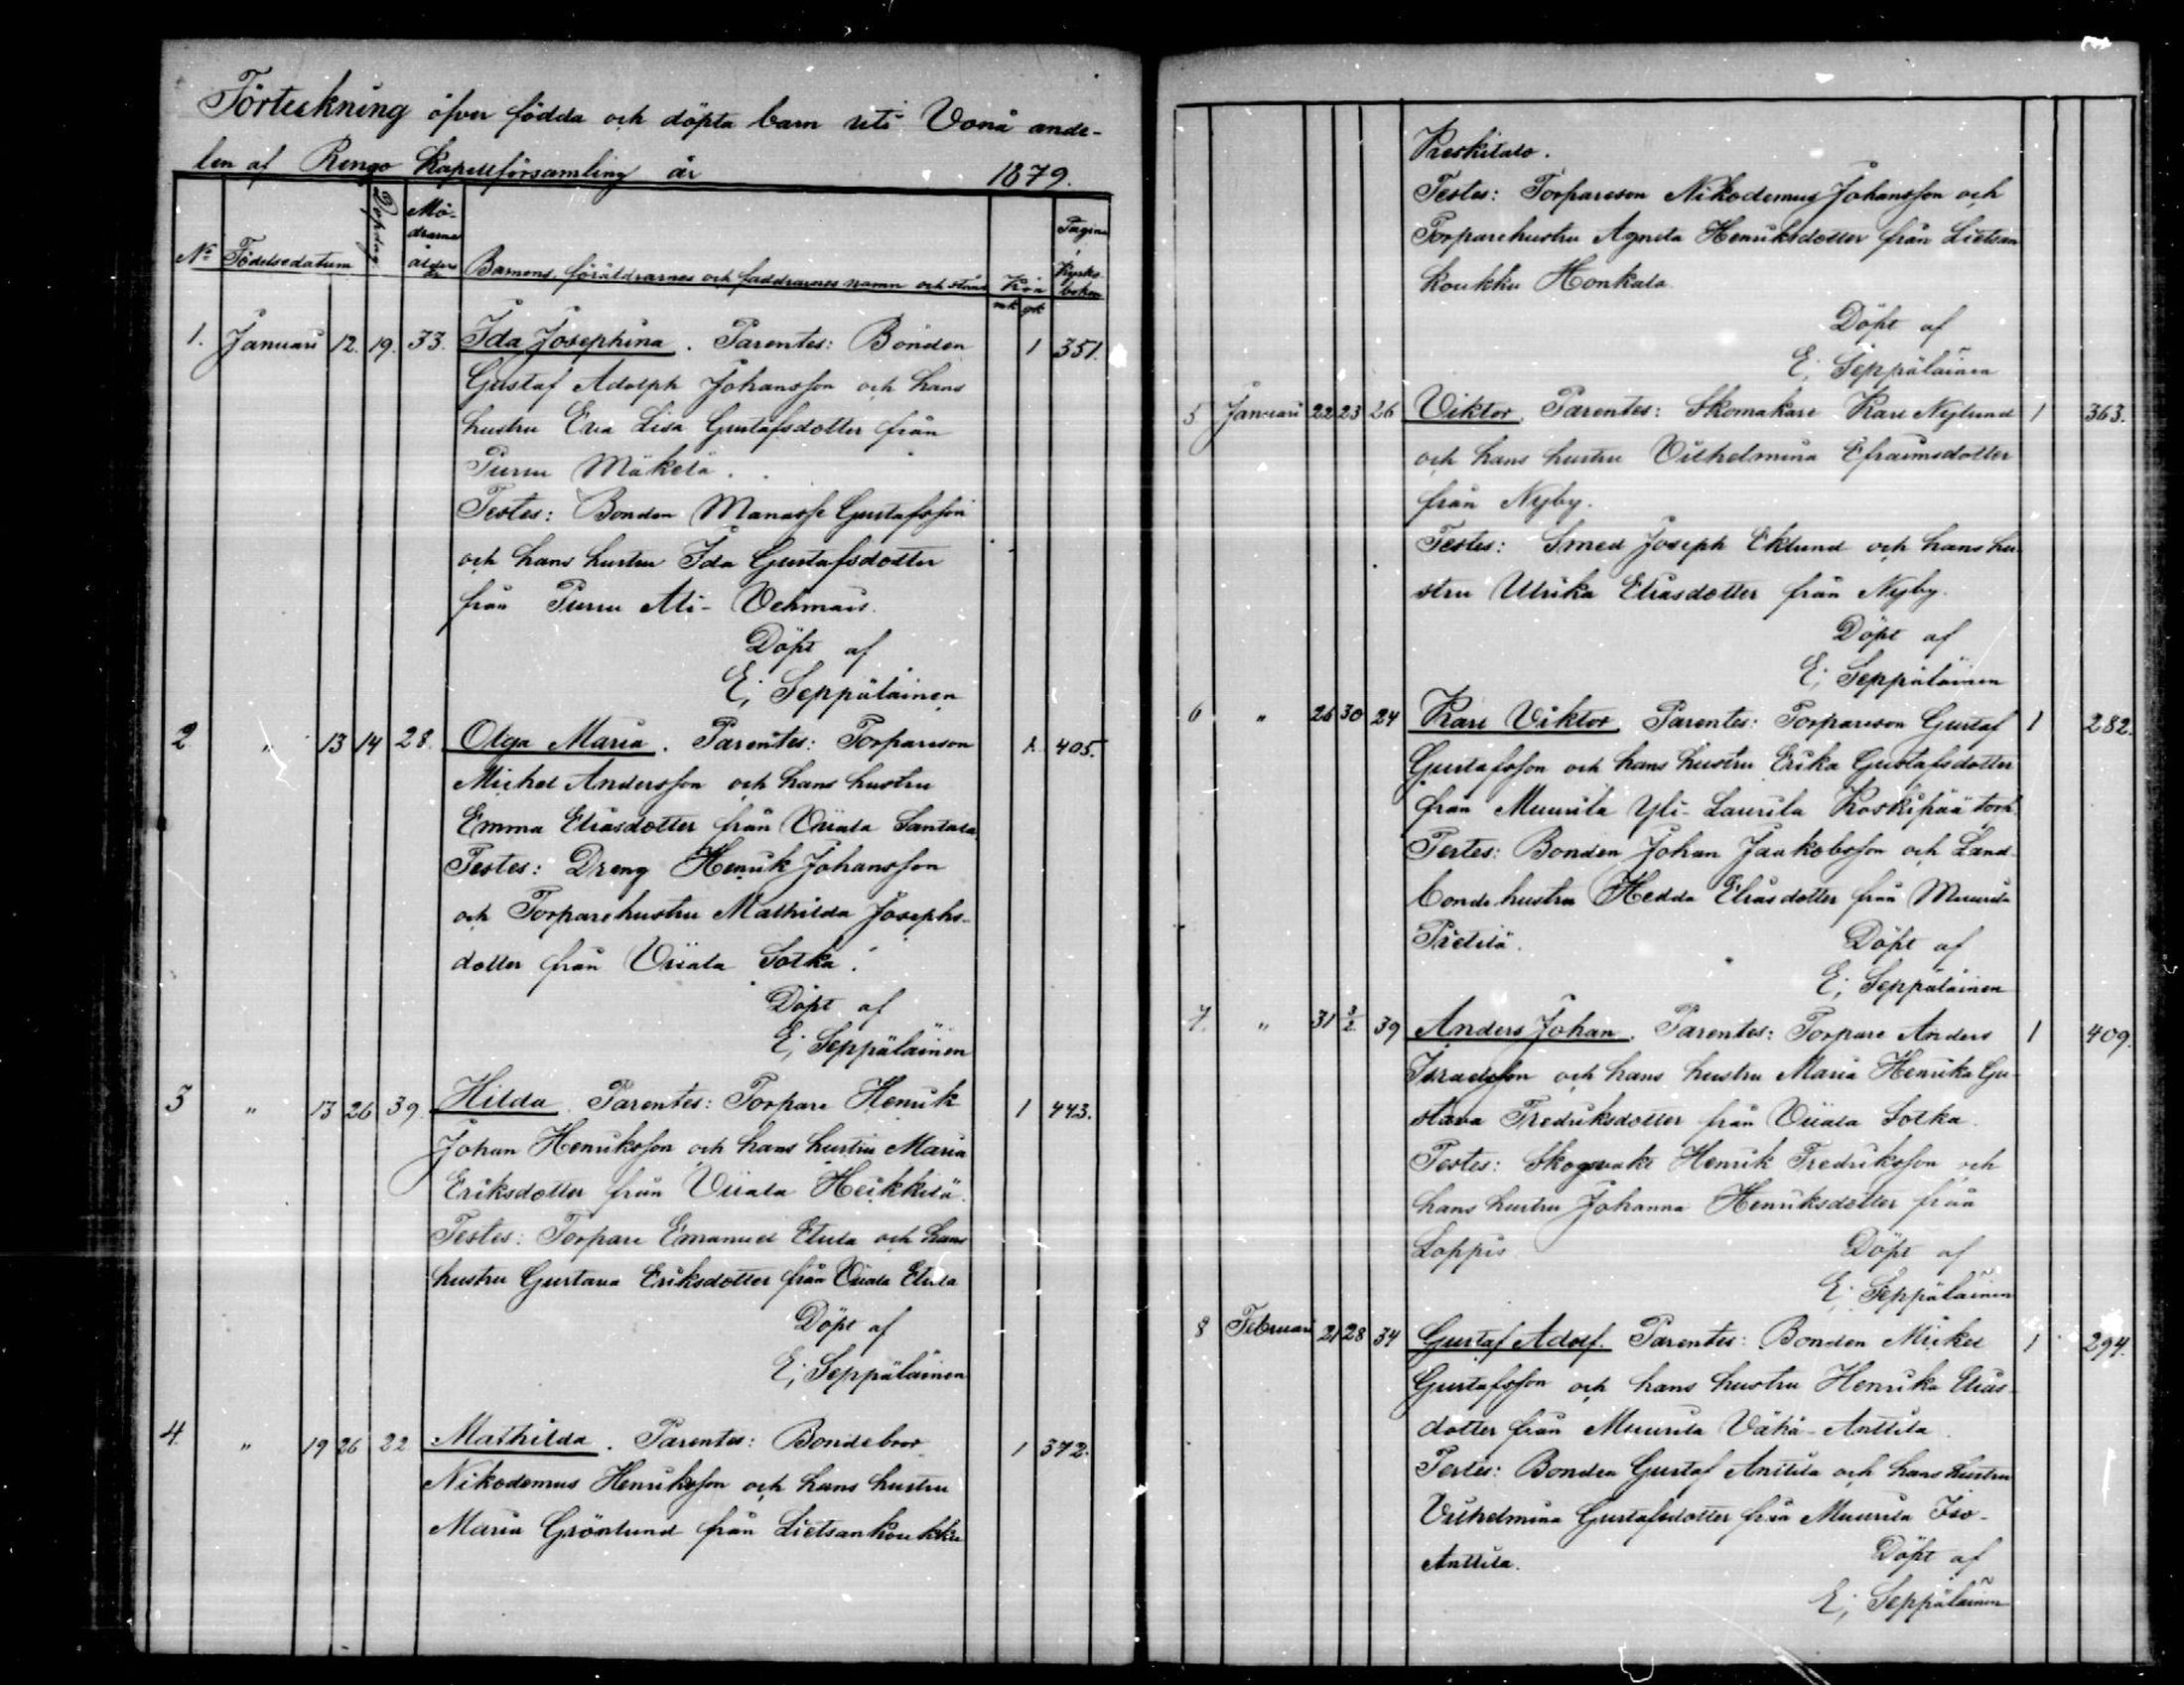 Förteckning öfver födda och döpta barn uti Vonå ande-
len af Rengo Kapellförsamling år 1879.
No Födelsedatum Dopdag Mödrarna ålders år Barnens, föräldrarnes och faddrarnes namn och stånd Kön mk qk Pagina i Kyrkoboken
1. Januari 12. 19. 33. Ida Josephina. Parentes: Bonden 1 351.
Gustaf Adolph Johansson och hans
hustru Eva Lisa Gustafsdotter från
Puruu Mäkelä.
Testes: Bonden Manasse Gustafsson
och hans hustru Ida Gustafsdotter
från Puruu Ali- Vehmais.
Döpt af
E; Seppäläinen
2 " 13 14 28. Olga Maria. Parentes: Torpareson 1. 405.
Michel Andersson och hans hustru
Emma Eliasdotter från Viiala Santala
Testes: Dreng Henrik Johansson
och Torparehustru Mathilda Josephs-
dotter från Viiala Sotka.
Döpt af
E; Seppäläinen
3 " 13 26 39. Hilda. Parentes: Torpare Henrik 1 443.
Johan Henriksson och hans hustru Maria
Eriksdotter från Viiala Heikkilä.
Testes: Torpare Emanuel Etula och hans
hustru Gustava Eriksdotter från Viiala Etula
Döpt af
E; Seppäläinen
4. " 19 26 22 Mathilda. Parentes: Bondebror 1 372.
Nikodemus Henriksson och hans hustru
Maria Grönlund från Lietsankoukku
Preskitalo.
Testes: Torpareson Nikodemus Johansson och
Torparehustru Agneta Henriksdotter från Lietsan
koukku Honkala
Döpt af
E; Seppäläinen
5 Januari 22 23 26 Viktor. Parentes: Skomakare Karl Nylund 1 363.
och hans hustru Vilhelmina Efraimsdotter
från Nyby.
Testes: Smed Joseph Eklund och hans hu
stru Ulrika Eliasdotter från Nyby.
Döpt af
E; Seppäläinen
6 " 26 30 24 Karl Viktor. Parentes: Torpareson Gustaf 1 282.
Gustafsson och hans hustru Erika Gustafsdotter
från Muurila Yli-Laurila Koskipää torp.
Testes: Bonden Johan Jaakobsson och Land-
bonde hustru Hedda Eliasdotter från Muurila
Pietilä. Döpt af
E; Seppäläinen
7. " 31 3/2. 39 Anders Johan. Parentes: Torpare Anders 1 409.
Israelsson och hans hustru Maria Henrika Gu-
stava Fredriksdotter från Viiala Sotka.
Testes: Skogvakt Henrik Fredriksson och
hans hustru Johanna Henriksdotter från
Loppis. Döpt af
E; Seppäläinen
8 Februari 21 28 34 Gustaf Adolf. Parentes: Bonden Mikel 1 294.
Gustafsson och hans hustru Henrika Elias-
dotter från Muurila Vähä-Anttila.
Testes: Bonden Gustaf Anttila och hans hustru
Vilhelmina Gustafsdotter från Muurila Iso-
Anttila. Döpt af
E; Seppäläinen